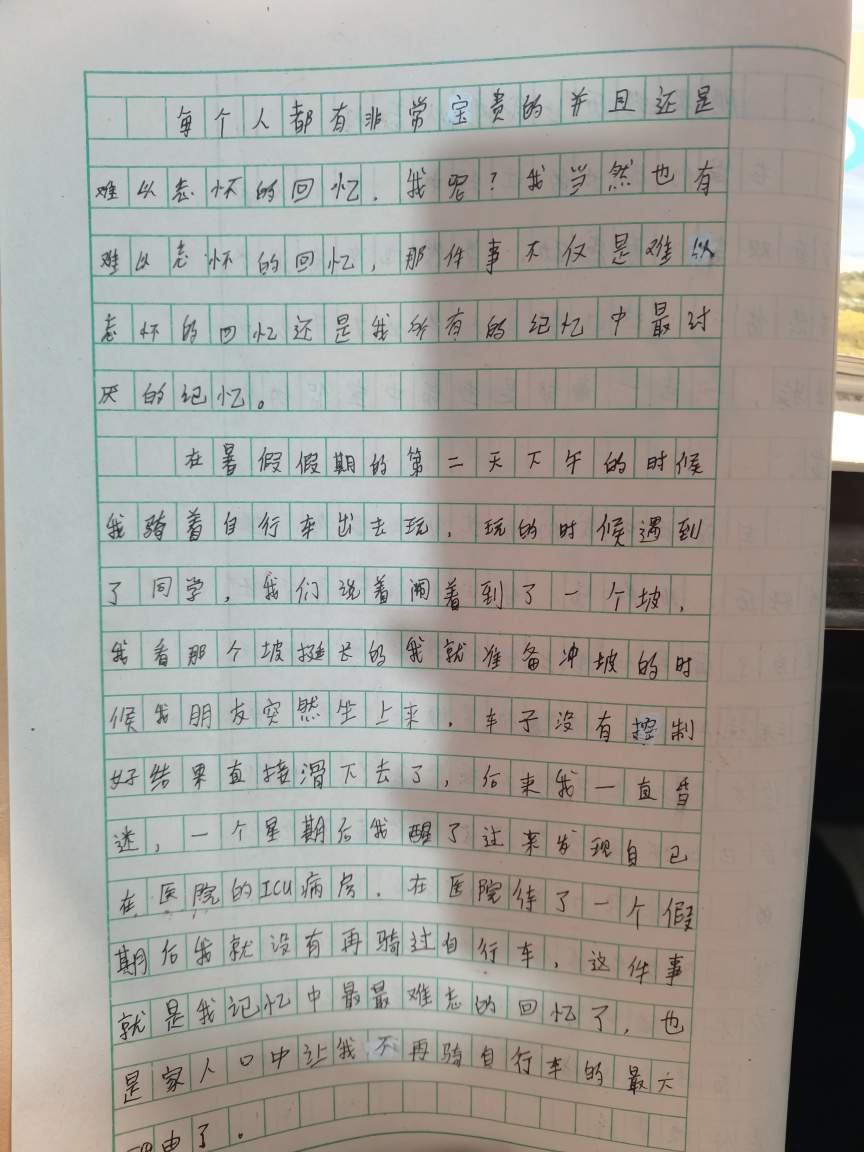 每个人都有非常宝贵的并且还是
难以忘怀的回忆，我呢？我当然也有
难以忘怀的回忆，那件事不仅是难以
忘怀的回忆还是我所有的记忆中最讨
厌的记忆。
在暑假假期的第二天下午的时候
我骑着自行车出去玩，玩的时候遇到
了同学，我们说着闹着到了一个坡，
我看那个坡挺长的我就准备冲坡的时
候我朋友突然坐上来，车子没有控制
好结果直接滑下去了，后来我一直昏
迷，一个星期后我醒了过来发现自己
在医院的ICU病房．在医院待了一个假
期后我就没有再骑过自行车，这件事
就是我记忆中最最难忘的回忆了，也
是家人口中让我不再骑自行车的最大
理由了。